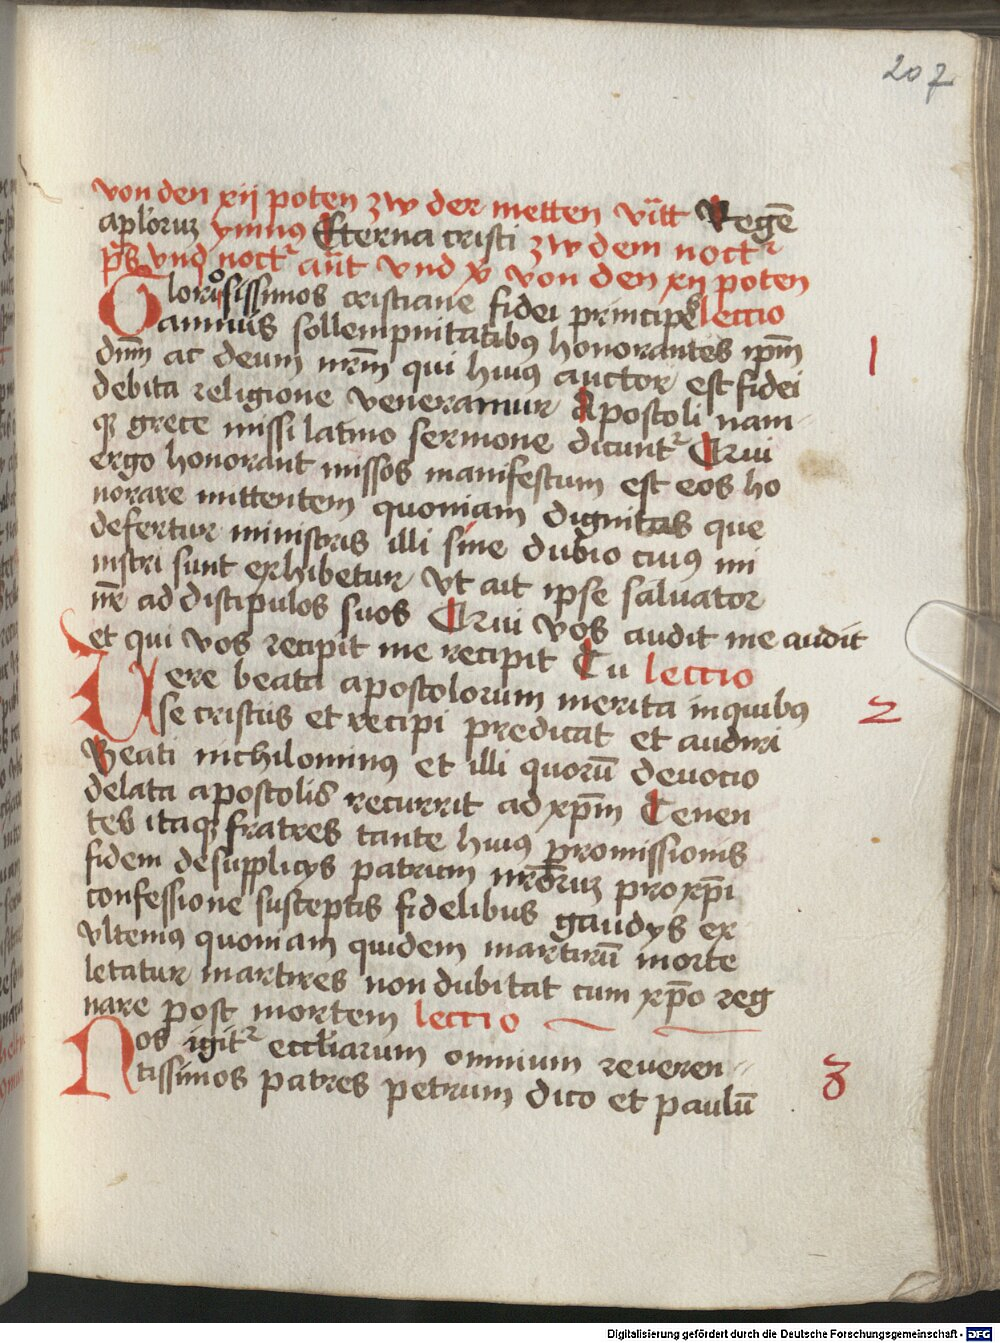 207
von den xij poten zw der metten vitt Regē
aplorum ymnus Eterna cristi zw dem noctr
ps vnd noctr ant vnd v von den xij poten
Gloriosissimos cristiane fidei principes lectio
annuis sollempnitatibus honorantes ipm 1
dnm ac deum nrm qui huius auctor est fidei
debita religione veneramur Apostoli nam
qz grece missi latino sermone dicuntr Qui
ergo honorant missos manifestum est eos ho
norare mittentem quoniam dignitas que
defertur ministris illi sine dubio cuius mi
nistri sunt exhibetur vt ait ipse saluator
nr ad discipulos suos Qui vos audit me audit
et qui vos recipit me recipit Tu lectio
Vere beata apostolorum merita in quibus 2
se cristus et recipi predicat et audiri
Beati nichilominus et illi quorū deuocio
delata apostolis recurrit ad xpm Tenen
tes itaqz fratres tante huius promissionis
fidem de supplicijs patrum nrorum pro xpi
confessione susceptis fidelibus gaudijs ex
ultemus quoniam quidem martirū morte
letatur martires non dubitat cum xpo reg
nare post mortem lectio
Nos igitr eccliarum omnium reueren
tissimos patres petrum dico et paulū 3
Digitalisierung gefördert durch die Deutsche Forschungsgemeinschaft - DFG